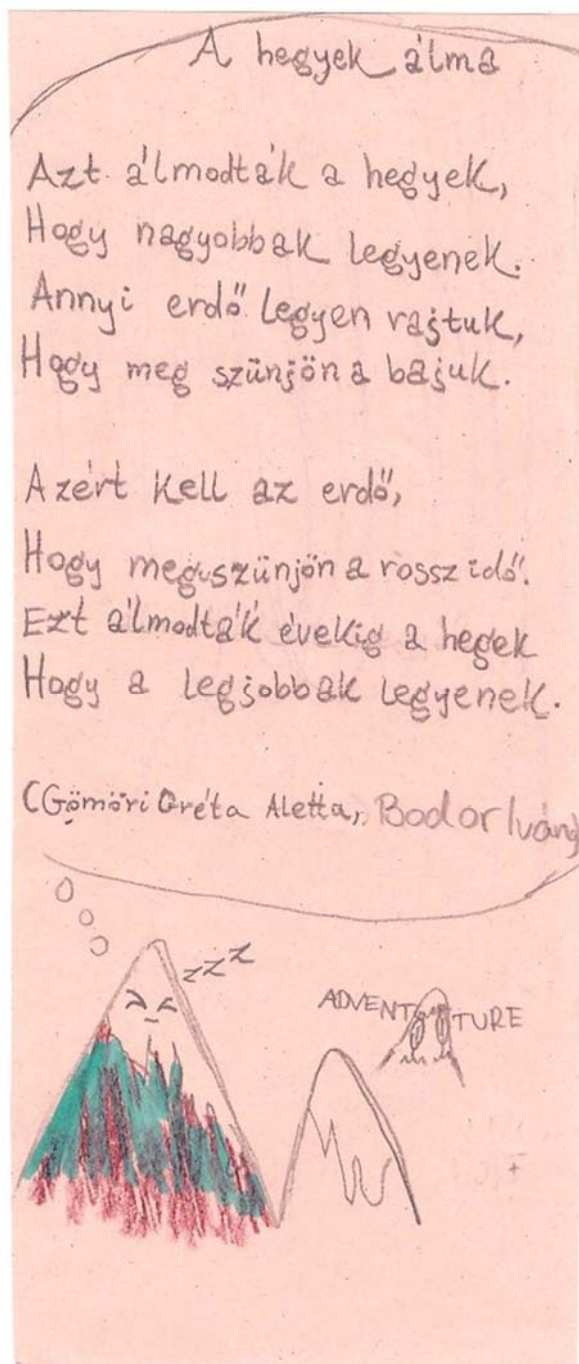 A hegyek álma
Azt álmodták a hegyek,
Hogy nagyobbak legyenek.
Annyi erdő legyen rajtuk,
Hogy meg szünjön a bajuk.
Azért kell az erdő,
Hogy megszünjön a rossz idő.
Ezt álmodták évekig a hegek
Hogy a legjobbak legyenek.
(Gömöri Gréta Aletta, Bodor Iván)
zzz
ADVENTURE